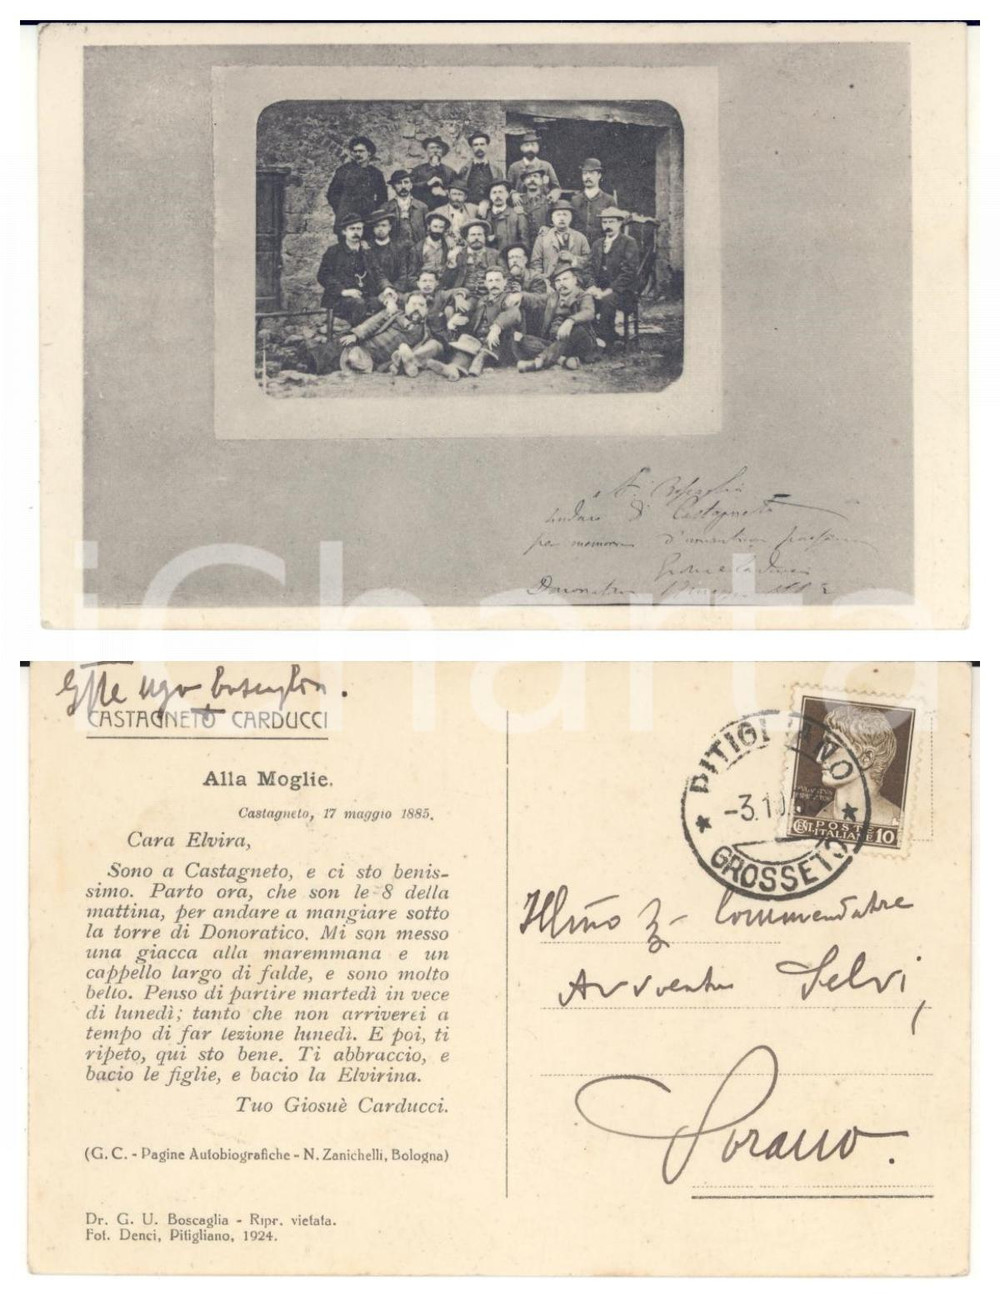 Castagneto
per memoria
Donoratico
iCharta
CASTAGNETO CARDUCCI
Alla Moglie.
Castagneto, 17 maggio 1885.
Cara Elvira,
Sono a Castagneto, e ci sto benis-
simo. Parto ora, che son le 8 della
mattina, per andare a mangiare sotto
la torre di Donoratico. Mi son messo
una giacca alla maremmana e un
cappello largo di falde, e sono molto
bello. Penso di partire martedì in vece
di lunedì; tanto che non arriverei a
tempo di far lezione lunedì. E poi, ti
ripeto, qui sto bene. Ti abbraccio, e
bacio le figlie, e bacio la Elvirina.
Tuo Giosuè Carducci.
(G. C. - Pagine Autobiografiche - N. Zanichelli, Bologna)
Dr. G. U. Boscaglia - Ripr. vietata.
Fot. Denci, Pitigliano, 1924.
PITIGLIANO
-3.10.
GROSSETO
POSTE
CENT. ITALIANE 10
Commendatore
Selvi,
Sorano.